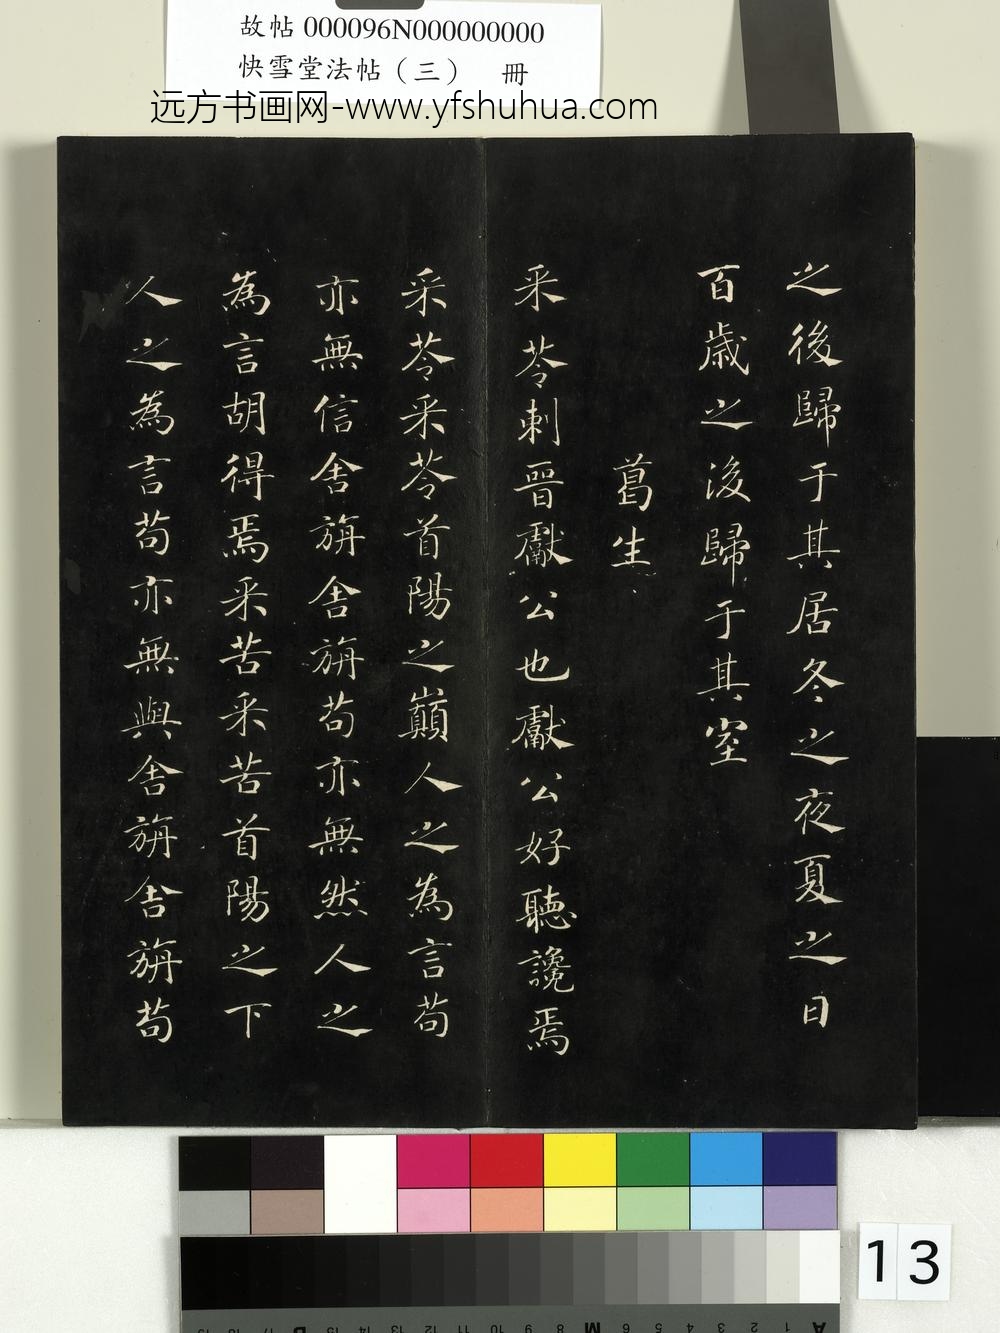 故帖 000096N000000000
快雪堂法帖（三） 冊
远方书画网-www.yfshuhua.com
之後歸于其居冬之夜夏之日
百歲之後歸于其室
葛生
采苓刺晉獻公也獻公好聽讒焉
采苓采苓首陽之巔人之為言苟
亦無信舍旃舍旃苟亦無然人之
為言胡得焉采苦采苦首陽之下
人之為言苟亦無與舍旃舍旃苟
13